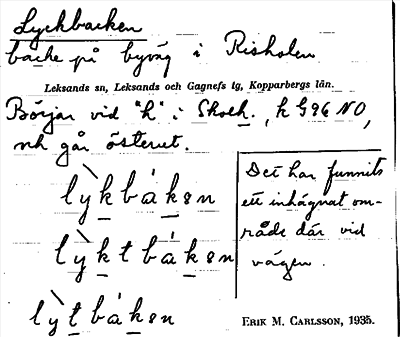 Lyckbacken
backe på byväg i Risholen
Leksands sn, Leksands och Gagnefs tg, Kopparbergs län.
Börjar vid "h" i Skolh., k G96 NO,
och går österut.
lỳkbákən
Det har funnits
ett inhägnat om-
råde där vid
vägen.
lỳktbákən
lỳtbákən
ERIK M. CARLSSON, 1935.